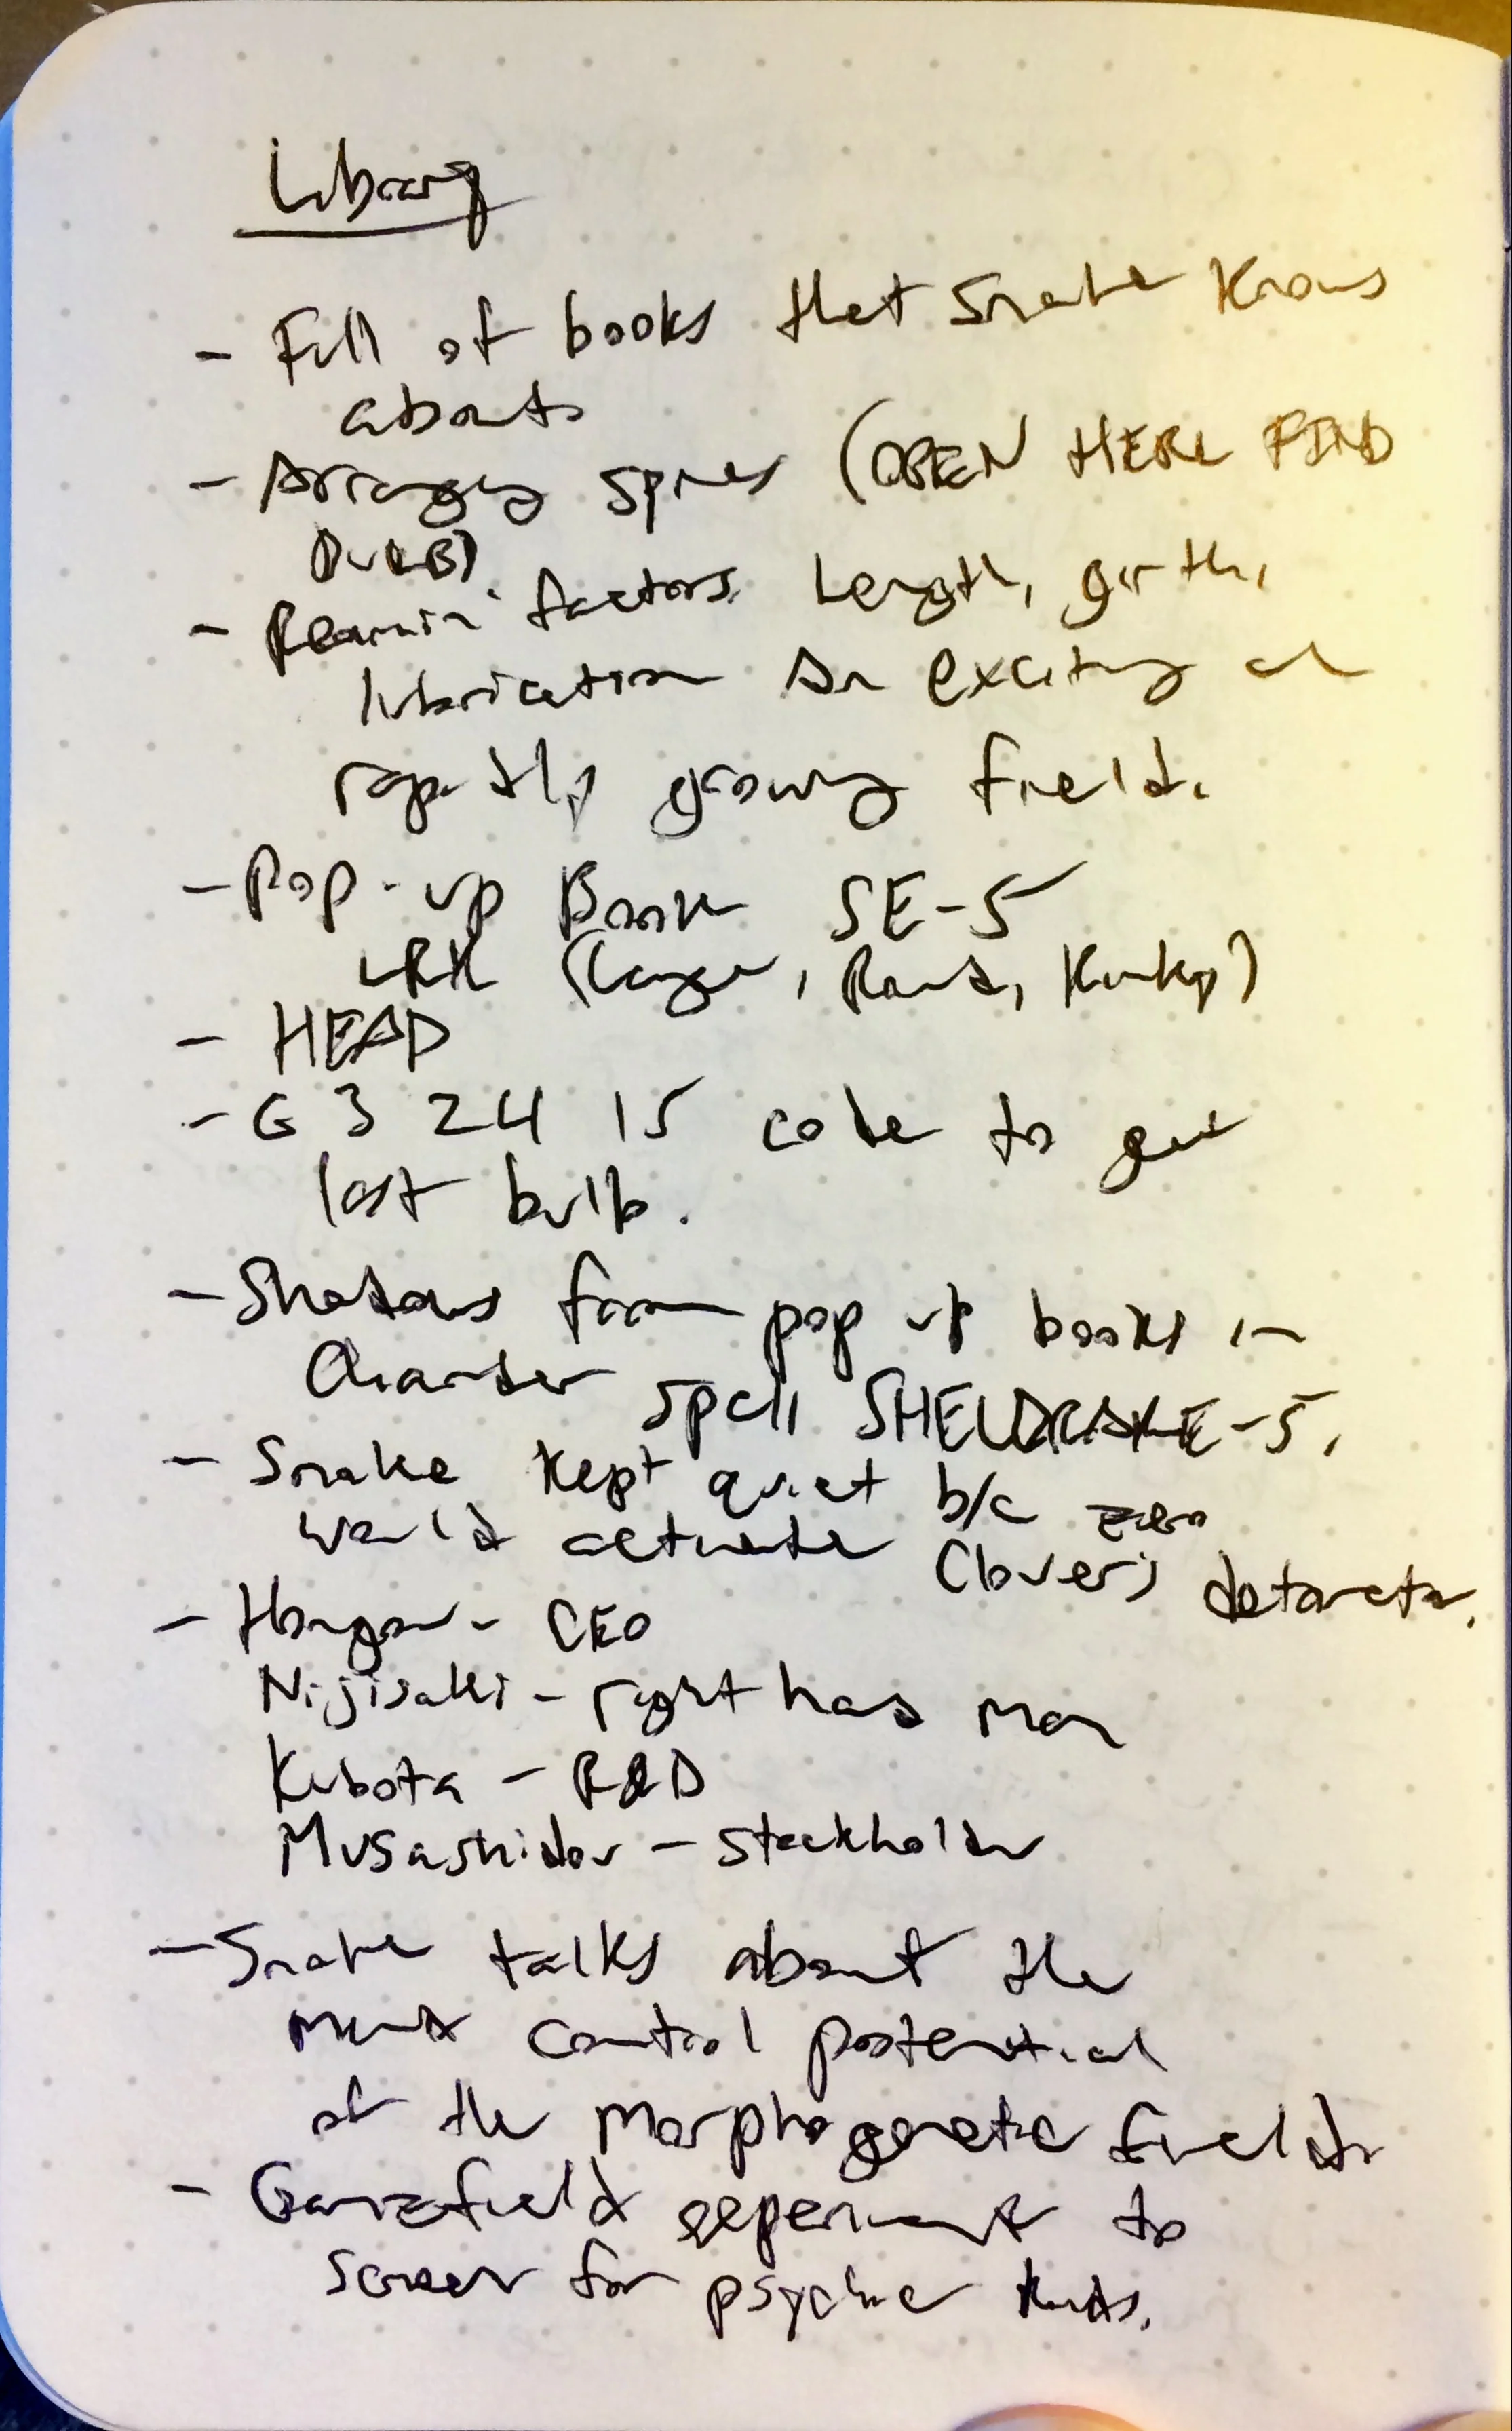 Library
- Full of books that Snake knows
about.
- Arranging spines (OPEN HERE FIND
BULB)
- Reamin' factors. Length, girth,
lubrication An exciting and
rapidly growing field.
- Pop-up Book SE-5
LRK (Large, Round, Kinky)
- HEAD
- G 3 24 15 code to get
last bulb.
- Shadows from pop up books in
Chamber spell SHELDRAKE-5.
- Snake kept quiet b/c zero
would activate Clover's detonator.
- Hongou - CEO
Nijisaki - right hand man
Kubota - R&D
Musashidou - Stockholder
- Snake talks about the
mind control potential
of the morphogenetic fields
- Ganzfield experiment to
screen for psychic kids.